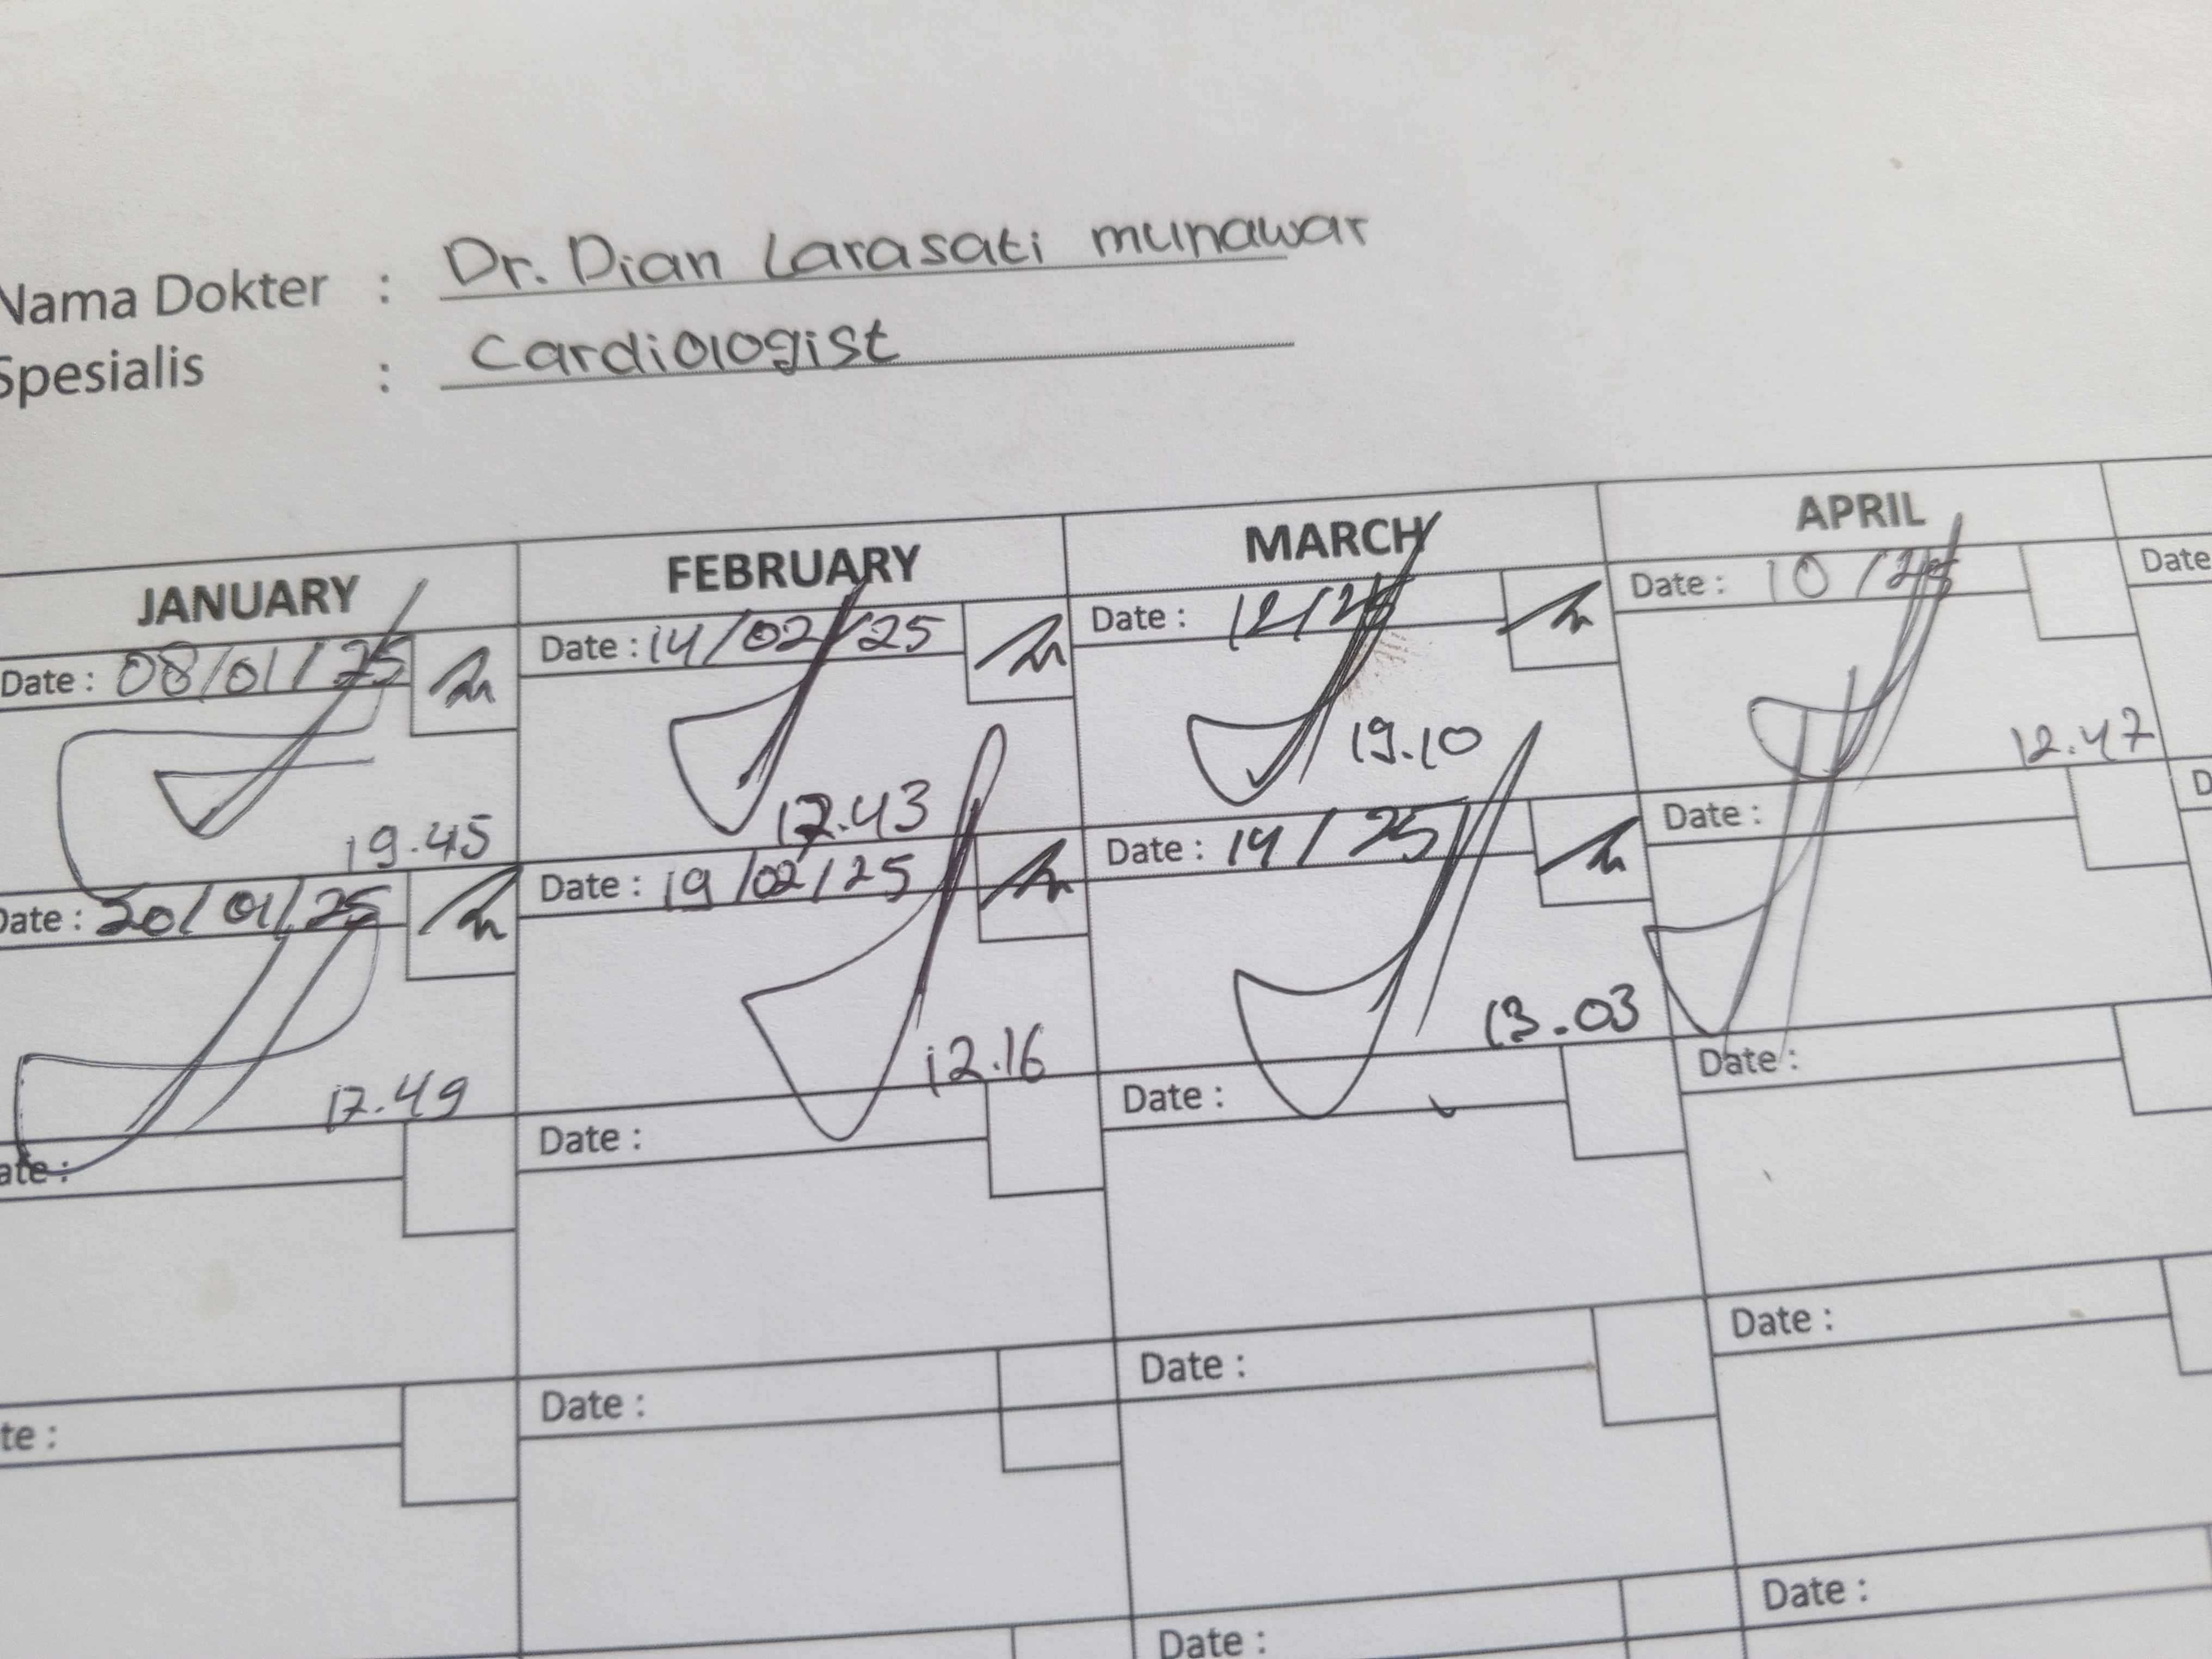 Nama Dokter : Dr. Dian Larasati munawar
Spesialis : Cardiologist
JANUARY FEBRUARY MARCH APRIL
Date : 08/01/25 Date : 14/02/25 Date : 12/25 Date : 10/25 Date
19.45 17.43 19.10 12.47
Date : 20/01/25 Date : 19/02/25 Date : 14/25 Date : D
17.49 12.16 13.03
ate : Date : Date : Date :
te : Date : Date : Date :
Date : Date :